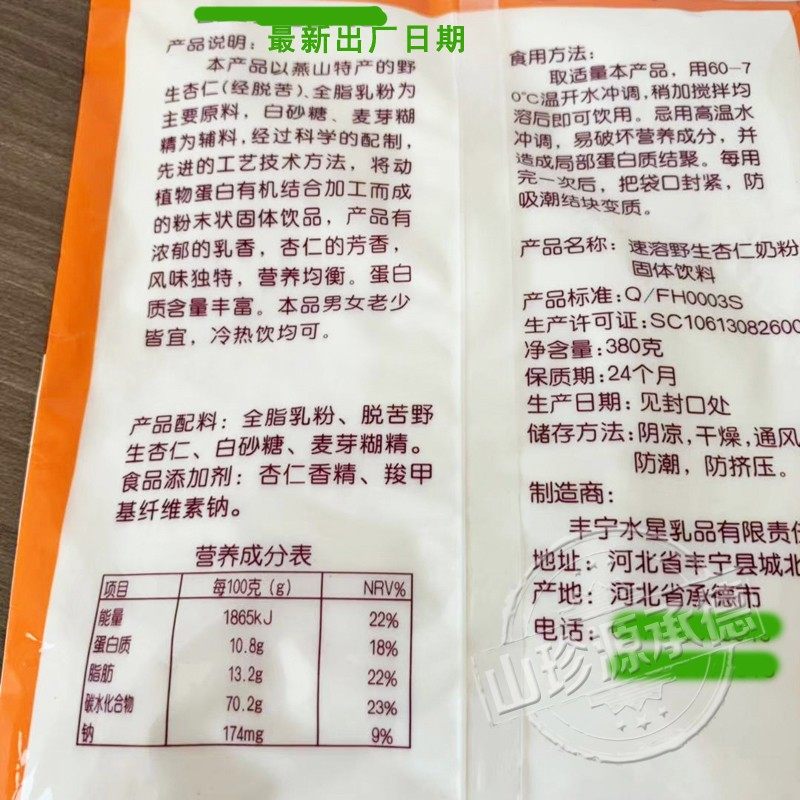 产品说明：
最新出厂日期
本产品以燕山特产的野
生杏仁(经脱苦)、全脂乳粉为
主要原料，白砂糖、麦芽糊
精为辅料，经过科学的配制，
先进的工艺技术方法，将动
植物蛋白有机结合加工而成
的粉末状固体饮品，产品有
浓郁的乳香，杏仁的芳香，
风味独特，营养均衡。蛋白
质含量丰富。本品男女老少
皆宜，冷热饮均可。
产品配料：全脂乳粉、脱苦野
生杏仁、白砂糖、麦芽糊精。
食品添加剂：杏仁香精、羧甲
基纤维素钠。
营养成分表
项目 每100克(g) NRV%
能量 1865kJ 22%
蛋白质 10.8g 18%
脂肪 13.2g 22%
碳水化合物 70.2g 23%
钠 174mg 9%
食用方法：
取适量本产品，用60-7
0℃温开水冲调，稍加搅拌均
溶后即可饮用。忌用高温水
冲调，易破坏营养成分，并
造成局部蛋白质结聚。每用
完一次后，把袋口封紧，防
吸潮结块变质。
产品名称：速溶野生杏仁奶粉
固体饮料
产品标准：Q/FH0003S
生产许可证：SC1061308260
净含量：380克
保质期：24个月
生产日期：见封口处
储存方法：阴凉，干燥，通风
防潮，防挤压。
制造商：
丰宁水星乳品有限责任
地址：河北省丰宁县城北
产地：河北省承德市
电话：
山珍源承德